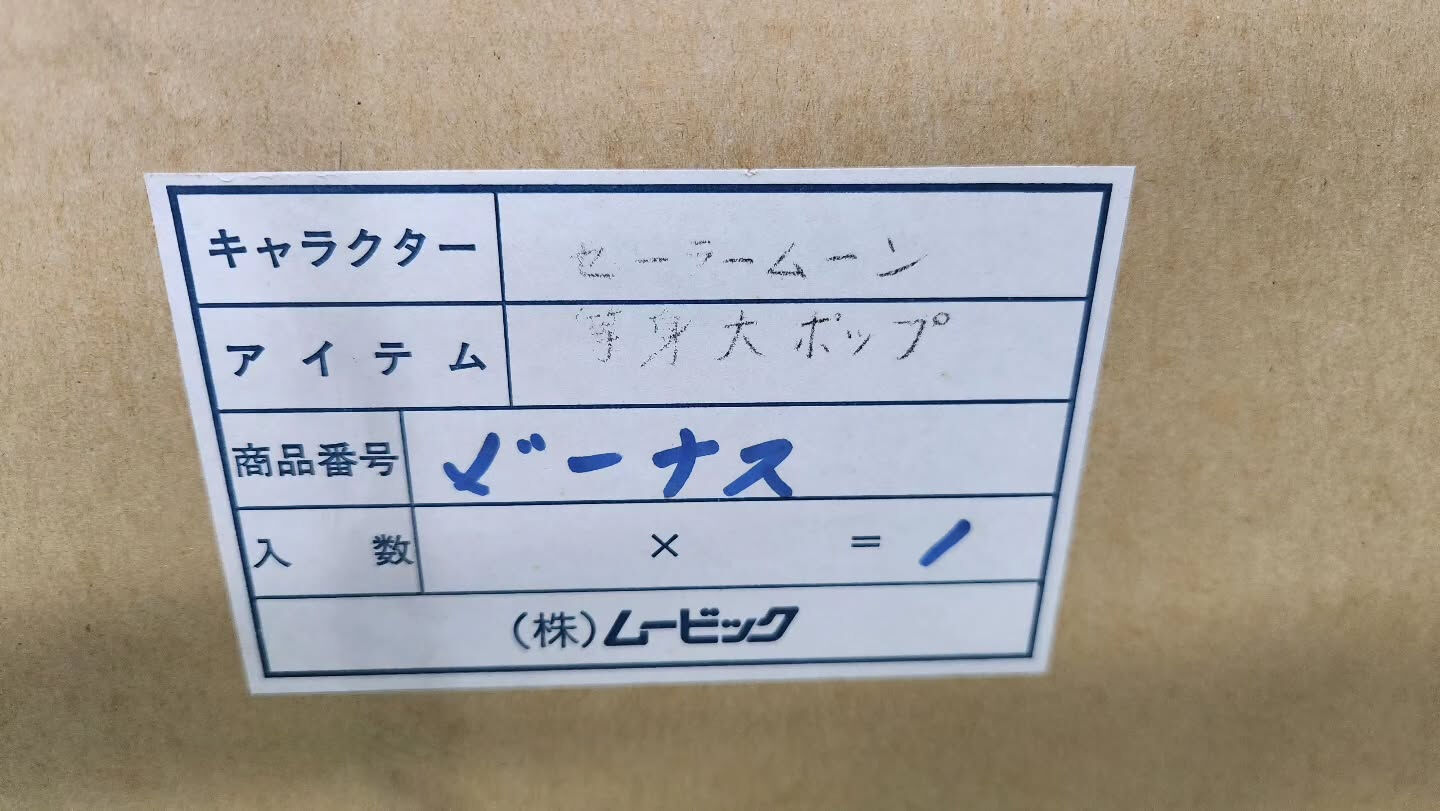 キャラクター セーラームーン
アイテム 等身大ポップ
商品番号 ビーナス
入数 × = 1
(株)ムービック